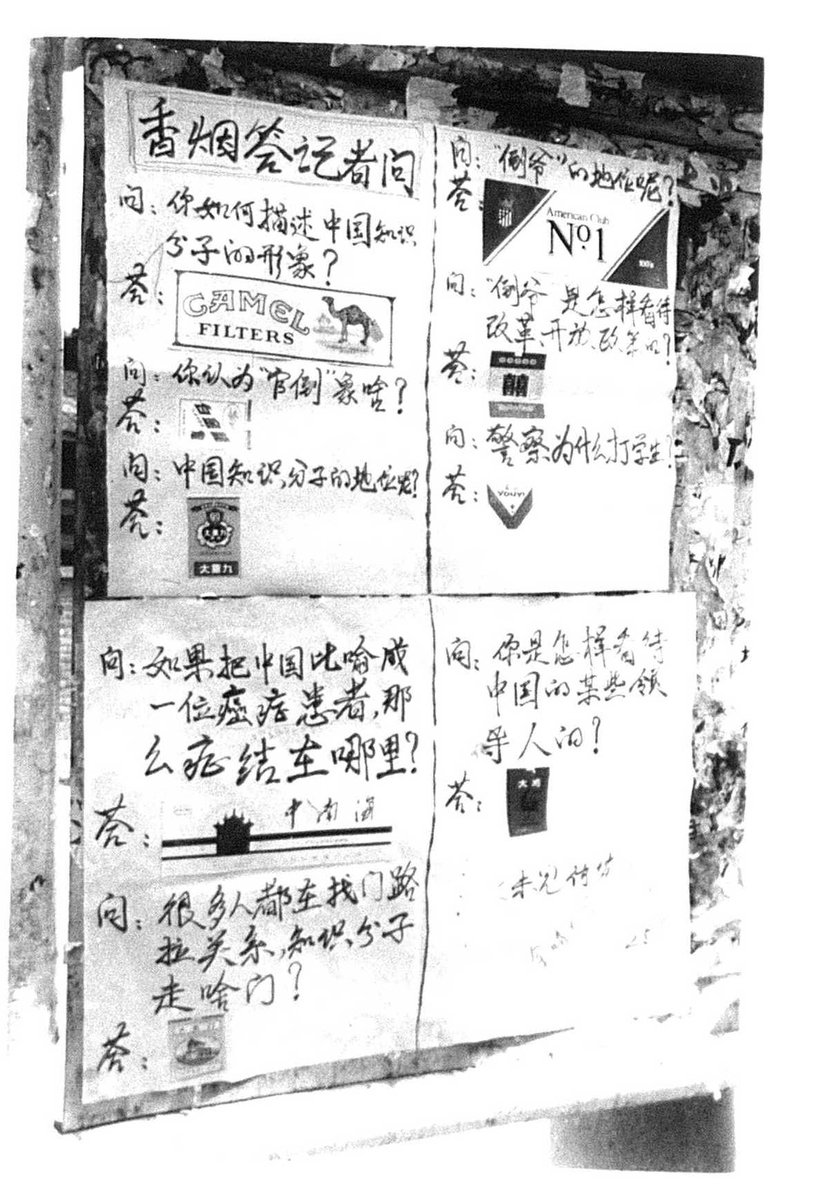 香烟答记者问
问：你如何描述中国知识
分子的形象？
答：
CAMEL
FILTERS
问：你认为"官倒"象啥？
答：
问：中国知识分子的地位呢？
答：
大重九
问："倒爷"的地位呢？
答：
American Club
Nº1
100's
问："倒爷"是怎样看待
改革、开放、政策的？
答：
囍
问：警察为什么打学生？
答：
YOUYI
问：如果把中国比喻成
一位癌症患者，那
么症结在哪里？
答：
中南海
问：很多人都在找门路
拉关系，知识分子
走啥门？
答：
问：你是怎样看待
中国的某些领
导人的？
答：